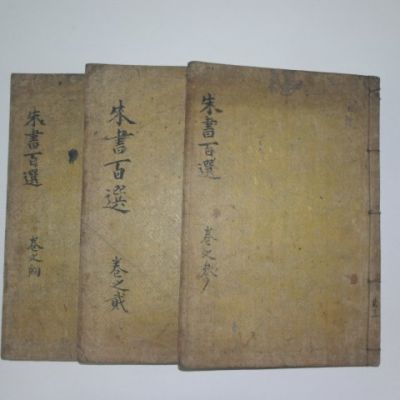 朱書百選
卷之
朱書百選
卷之貳
朱書百選
卷之